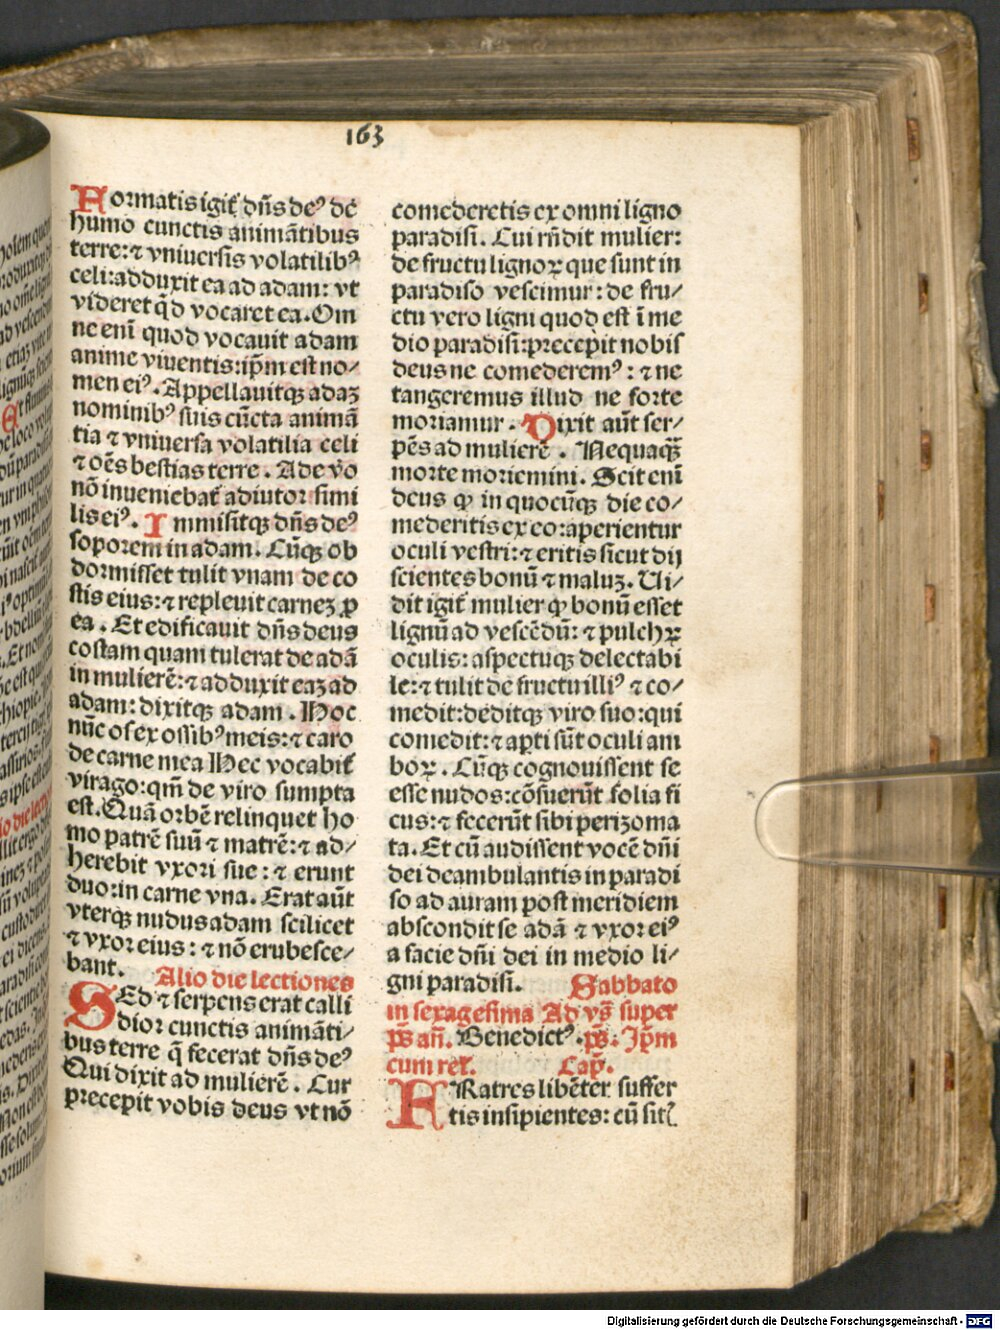 163
Formatis igit᷑ dñs deꝰ de
humo cunctis animãtibus
terre: ⁊ vniuersis volatilibꝰ
celi: adduxit ea ad adam: vt
videret qd̃ vocaret ea. Om
ne enĩ quod vocauit adam
anime viuentis: ip̃m est no⸗
men eiꝰ. Appellauitqꝫ adaꝫ
nominibꝰ suis cũcta animã
tia ⁊ vniuersa volatilia celi
⁊ oẽs bestias terre. Ade v̾o
nõ inueniebat᷑ adiutor simi
lis eiꝰ. Immisitqꝫ dñs deꝰ
soporem in adam. Cũqꝫ ob
dormisset tulit vnam de co
stis eius: ⁊ repleuit carneꝫ ꝓ
ea. Et edificauit dñs deus
costam quam tulerat de adã
in mulierẽ: ⁊ adduxit eaꝫ ad
adam: dixitqꝫ adam. Hoc
nũc os ex ossibꝰ meis: ⁊ caro
de carne mea Hec vocabit᷑
virago: qm̃ de viro sumpta
est. Quã orbẽ relinquet ho
mo patrẽ suũ ⁊ matrẽ: ⁊ ad⸗
herebit vxori sue: ⁊ erunt
duo: in carne vna. Erat aũt
vterqꝫ nudus adam scilicet
⁊ vxor eius: ⁊ nõ erubesce⸗
bant. Alio die lectiones
SEd ⁊ serpens erat calli
dior cunctis animãti⸗
bus terre q̃ fecerat dñs deꝰ
Qui dixit ad mulierẽ. Cur
precepit vobis deus vt nõ
comederetis ex omni ligno
paradisi. Cui rñdit mulier:
de fructu lignoꝝ que sunt in
paradiso vescimur: de fru⸗
ctu vero ligni quod est ĩ me
dio paradisi: precepit nobis
deus ne comederemꝰ: ⁊ ne
tangeremus illud ne forte
moriamur. Dixit aũt ser⸗
pẽs ad mulierẽ. Nequaqꝫ̃
morte moriemini. Scit enĩ
deus ꝙ in quocũqꝫ die co⸗
mederitis ex eo: aperientur
oculi vestri: ⁊ eritis sicut dij
scientes bonũ ⁊ maluꝫ. Ui⸗
dit igit᷑ mulier ꝙ bonũ esset
lignũ ad vescẽdũ: ⁊ pulchꝝ
oculis: aspectuqꝫ delectabi
le: ⁊ tulit de fructu illiꝰ ⁊ co⸗
medit: deditqꝫ viro suo: qui
comedit: ⁊ aꝑti sũt oculi am
boꝝ. Cũqꝫ cognouissent se
esse nudos: cõsuerũt folia fi
cus: ⁊ fecerũt sibi perizoma
ta. Et cũ audissent vocẽ dñi
dei deambulantis in paradi
so ad auram post meridiem
abscondit se adã ⁊ vxor eiꝰ
a facie dñi dei in medio li⸗
gni paradisi. Sabbato
in sexagesima Ad vs̃ super
ps̃ añ. Benedictꝰ. ps̃. Ip̃m
cum rel̃. Cap̃.
FRatres libẽter suffer
tis insipientes: cũ sit᷑
Digitalisierung gefördert durch die Deutsche Forschungsgemeinschaft - DFG